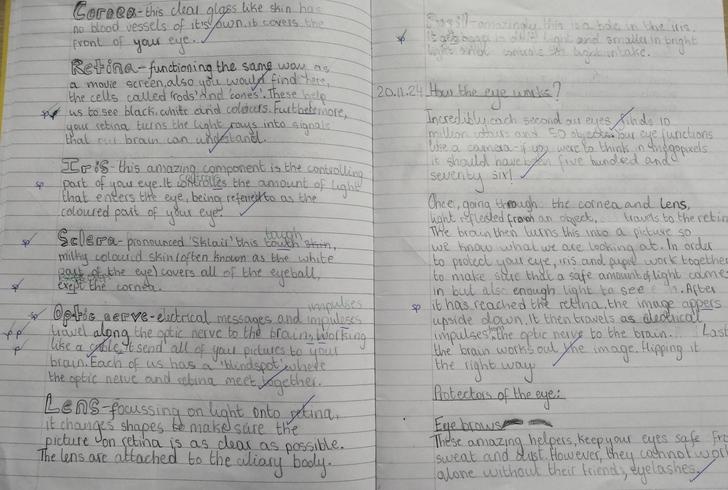 Cornea - this clear glass like skin has
no blood vessels of it's own. it covers the
front of your eye.
Retina - functioning the same way as
a movie screen, also you would find here,
the cells called 'rods' and 'cones'. These help
us to see black, white and colours. Furthermore,
your retina turns the light rays into signals
that our brain can understand.
Iris - this amazing component is the controlling
part of you eye. It controlles the amount of light
that enters the eye, being refered to as the
coloured part of your eye!
sp
Sclera - pronounced 'Sklair' this tough skin,
tough
milky coloured skin (often known as the white
part of the eye) covers all of the eyeball,
exept the cornea.
sp
impulses
Optic nerve - electrical messages and impulses
travel along the optic nerve to the brain, working
like a cable. It send all of your pictures to your
brain. Each of us has a 'blindspot', where
the optic nerve and retina meet together.
Lens - focussing on light onto retina,
it changes shapes to make sure the
picture on retina is as clear as possible.
The lens are attached to the ciliary body.
amazingly this is a hole in the iris.
light and smaller in bright
light intake.
20.11.24 How the eye works?
Incredibly, each second our eyes finds 10
million colours and 50 objects. Our eye functions
like a camera - if you were to think in megapixels
it should have been five hundred and
seventy six!
Once, going through the cornea and lens,
light reflected from an object, travels to the retin
The brain then turns this into a picture so
we know what we are looking at. In order
to protect your eye, iris and pupil work together
to make sure that a safe amount of light came
in but also enough light to see. After
sp
it has reached the retina, the image appers
upside down. It then travels as electrical
impulses the optic nerve to the brain... Last
the brain works out the image. Flipping it
the right way
Protectors of the eye:
Eyebrows
These amazing helpers, keep your eyes safe fro
sweat and dust. However, they cannot work
alone without their friends, eyelashes.